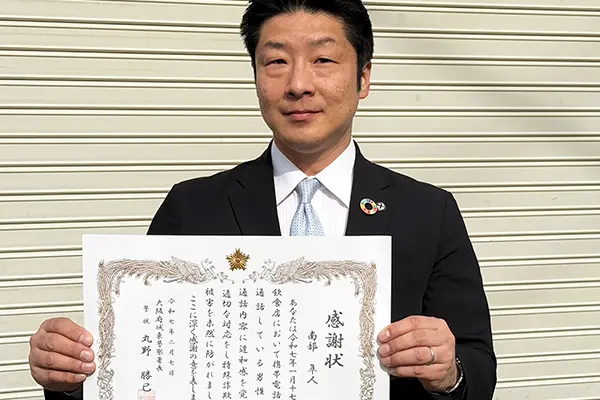 感謝状
南部 隼人
あなたは令和七年一月十七
飲食店において携帯電話
通話している男性
通話内容に違和感を覚
適切な対応をし特殊詐欺
被害を未然に防がれまし
ここに深く感謝の意を表しま
令和七年二月七日
大阪府城東警察署長
警視 丸野 勝巳